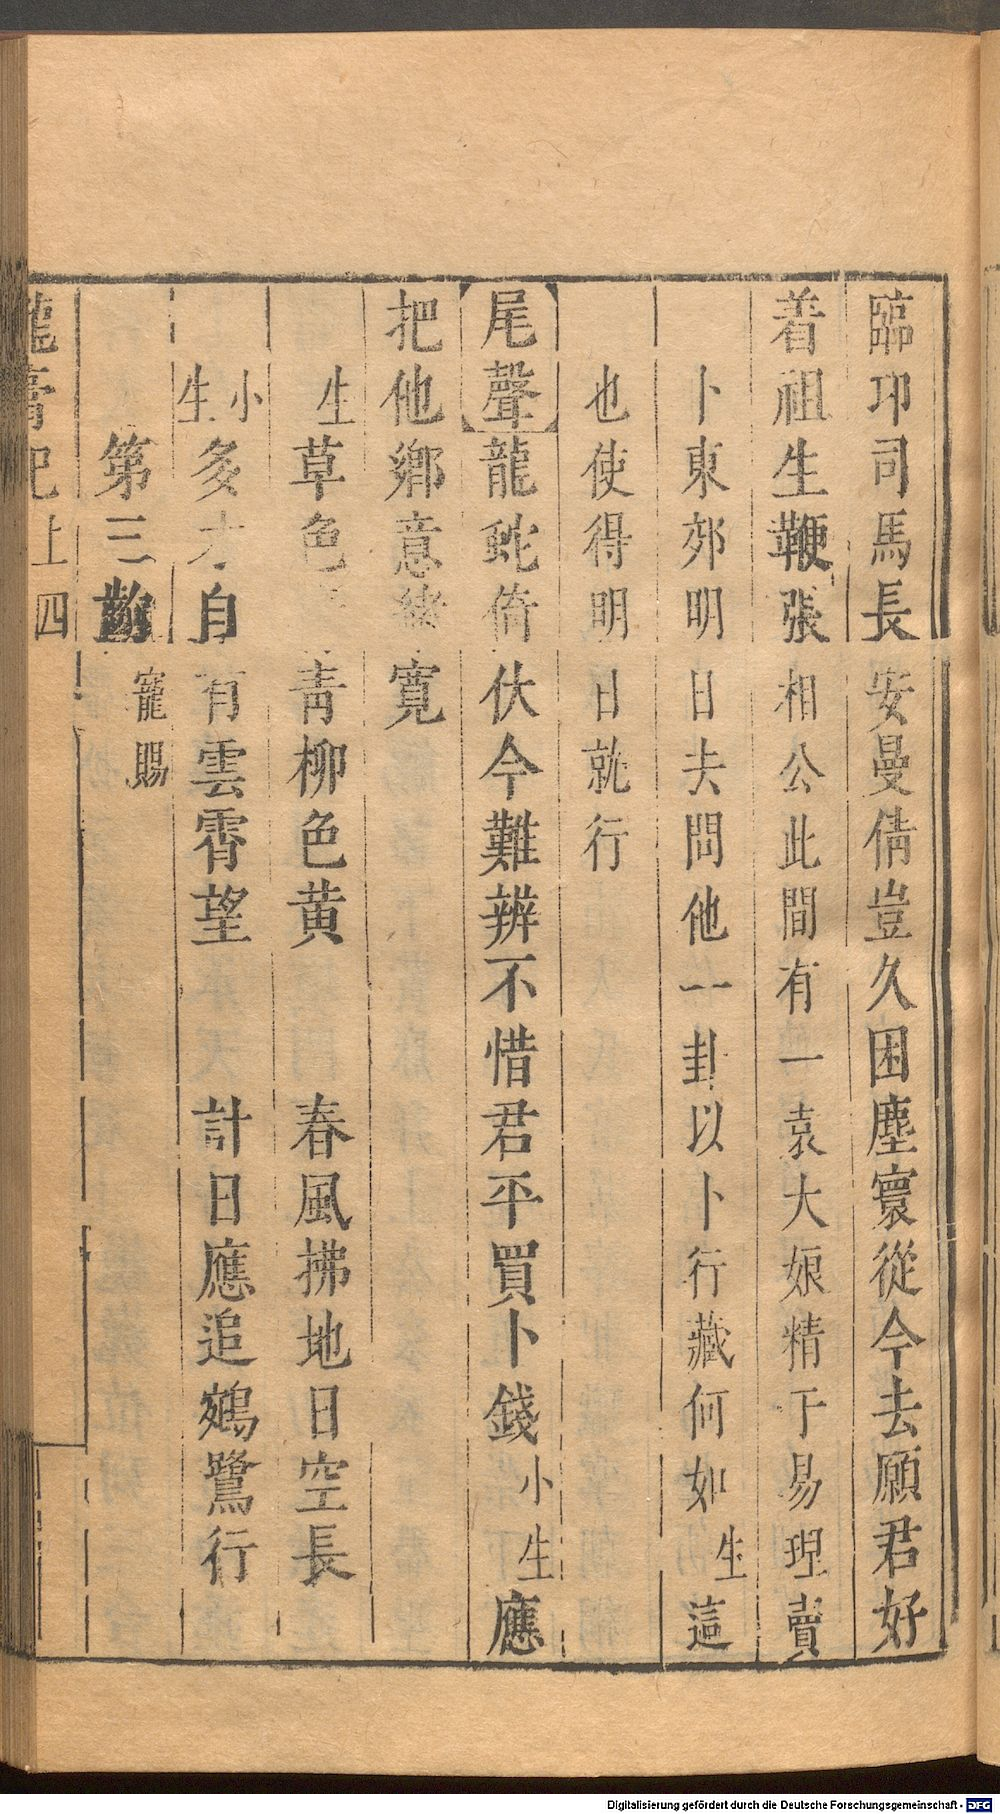 臨卭司馬長安曼倩豈久困塵寰從今去願君好
着祖生鞭張相公此間有一袁大娘精于易理賣
卜東郊明日去問他一卦以卜行藏何如生這
也使得明日就行
尾聲龍蛇倚伏今難辨不惜君平買卜錢小生應
把他鄉意緒寬
生草色青柳色黄春風拂地日空長
小生多才自有雲霄望計日應追鵷鷺行
第三齣寵賜
龍膏記上四
Digitalisierung gefördert durch die Deutsche Forschungsgemeinschaft - DFG